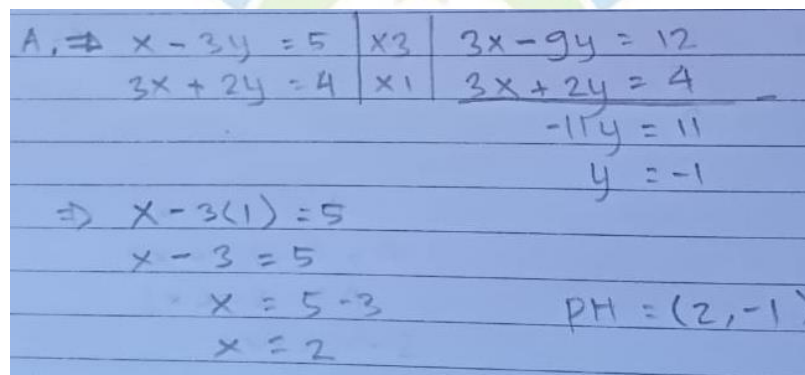 A. ⇒ x - 3y = 5 | x3 | 3x - 9y = 12
3x + 2y = 4 | x1 | 3x + 2y = 4 -
-11y = 11
y = -1
⇒ x - 3(1) = 5
x - 3 = 5
x = 5 - 3 PH = (2, -1)
x = 2